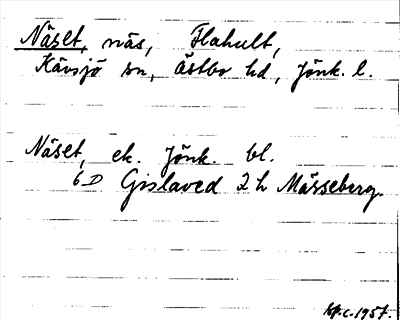 Näset, näs, Flahult,
Kävsjö sn, Östbo hd, Jönk. l.
Näset, ek. Jönk. bl.
6D Gislaved 2 h Mässeberg.
1957.